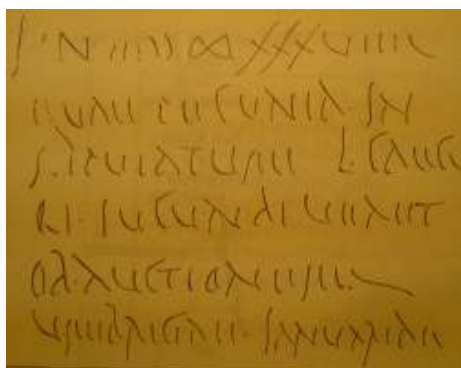 N ∞ XXXVIIII
QUAE PECUNIA IN
STIPULATUM L CAECI
LI IUCUNDI VENIT
OB AUCTIONEM
UMBRICIAE IANUARIAE